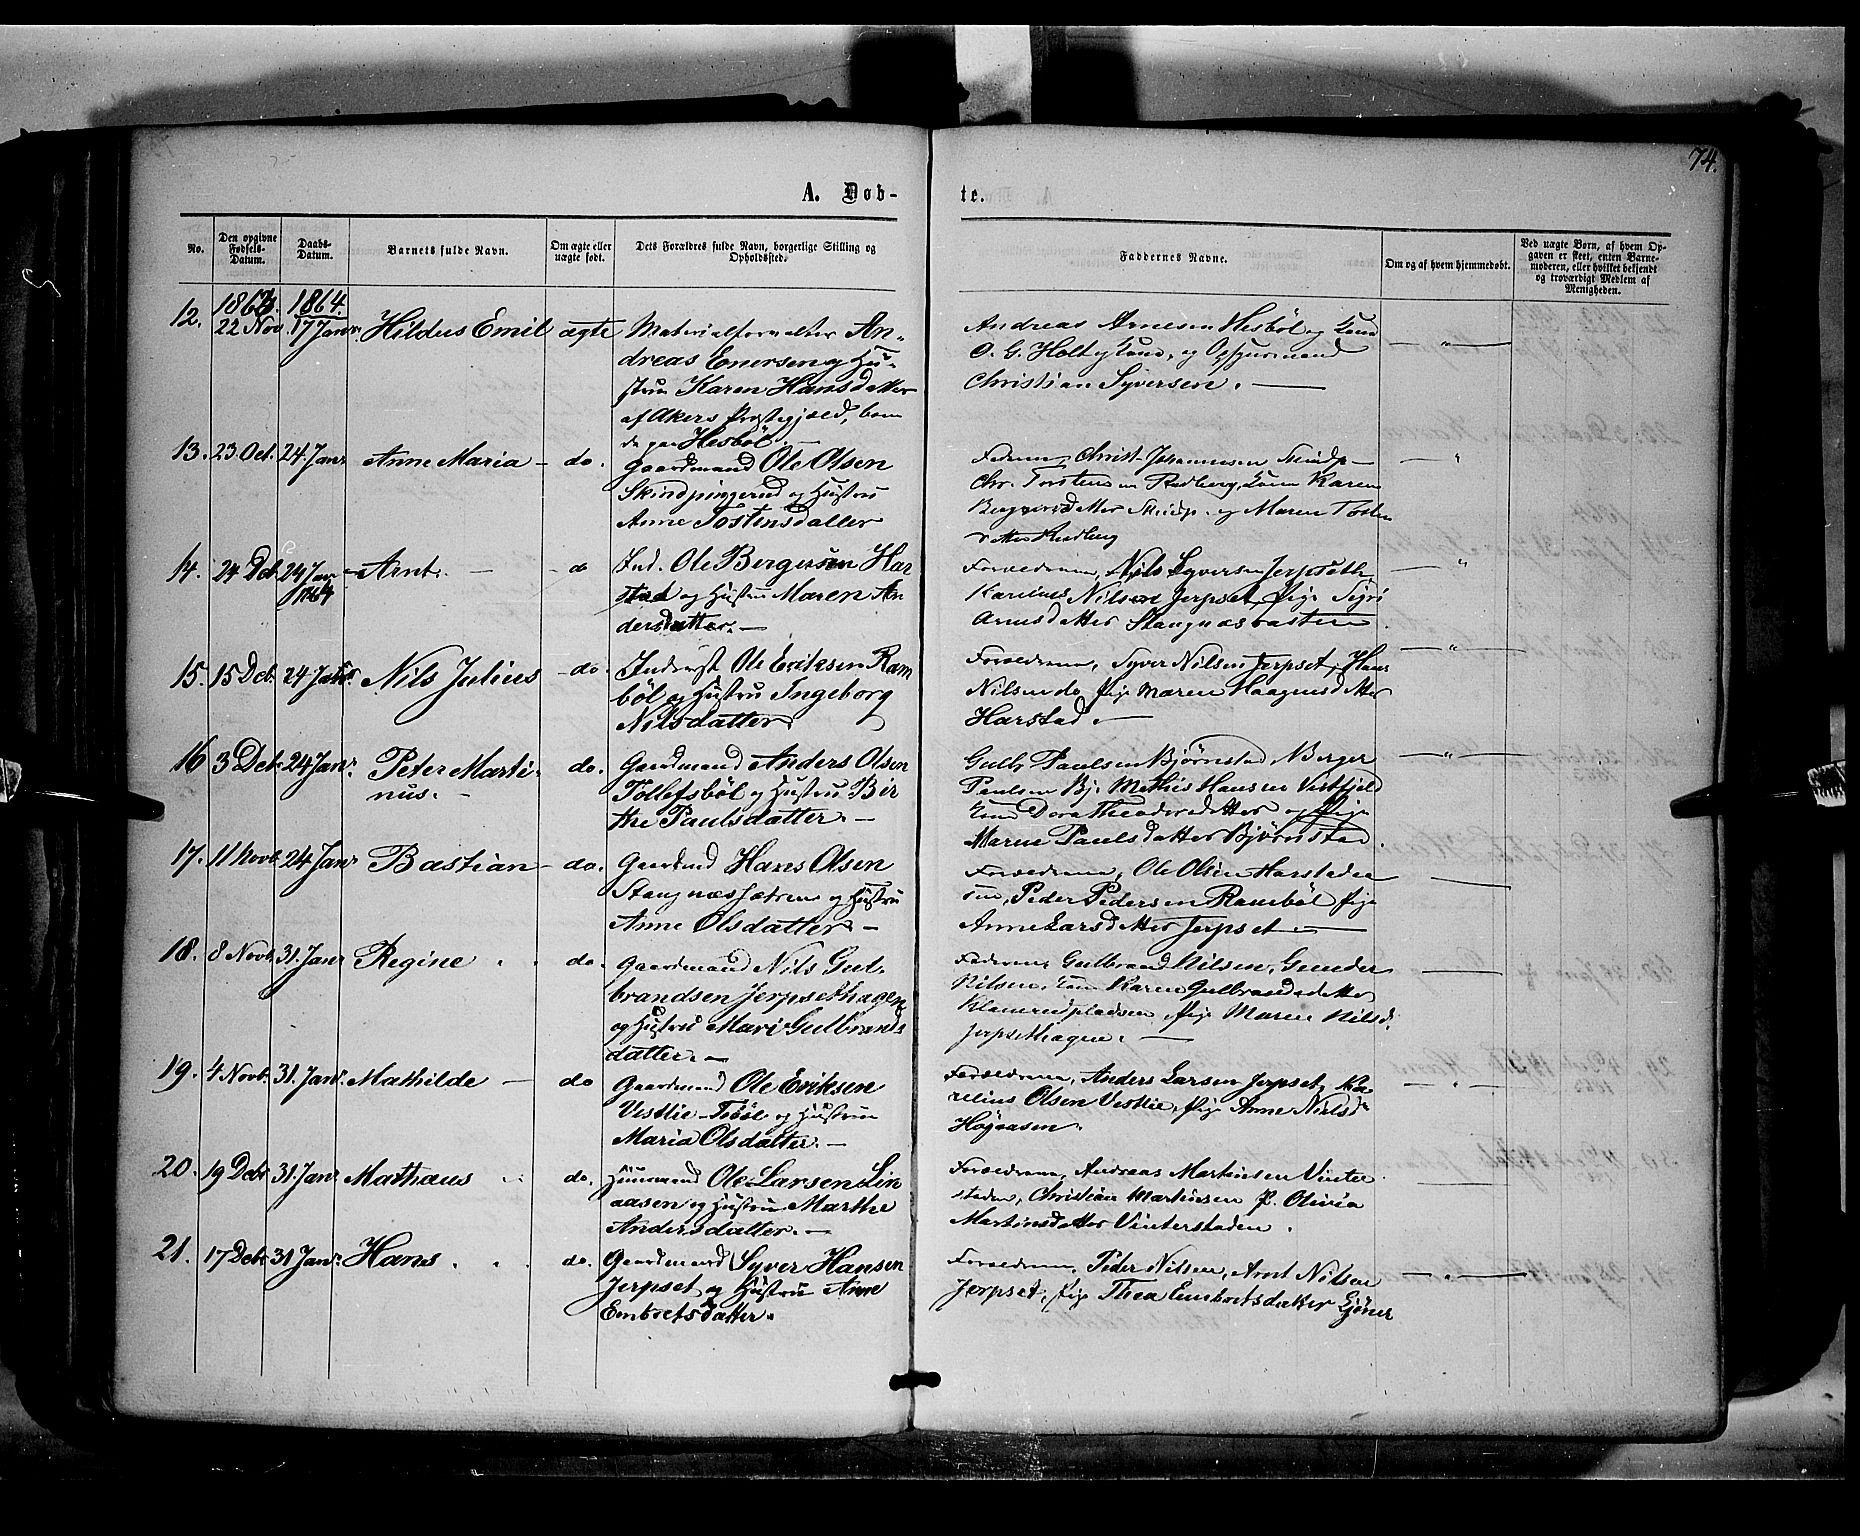 74.
A. Døb-
te.
No.
Den opgivne Fødsels-Datum.
Daabs-Datum.
Barnets fulde Navn.
Om ægte eller uægte født.
Dets Forældres fulde Navn, borgerlige Stilling og Opholdssted.
Faddernes Navne.
Om og af hvem hjemmedøbt.
Ved uægte Børn, af hvem Opgaven er skeet, enten Barnemoderen, eller hvilket bekjendt og troværdigt Medlem af Menigheden.
1863. 1864.
12. 22 Nov. 17 Janr. Hildus Emil ægte Materialforvalter An-
dreas Enersen og Hu-
stru Karen Hansdatter
af Akers Præstegjeld, boen
de paa Hesbøl.
Andreas Arnesen Hesbøl og Kone
O. G. Holt og Kone, og Opsynsmand
Christian Syversen.
13. 23 Oct. 24. Janr Anne Maria - do. Gaardmand Ole Olsen
Skindpungerud og Hustru
Anne Tostensdatter
Faderen, Christ. Johannesen Skindp-
Chr. Torstensen Rudberg, Kone Karen
Bergersdatter Skindp. og Maren Tosten
datter Rudberg
14. 24 Deb. 24 Jan 1864 Arnt. - do Ind. Ole Bergersen Har
stad og Hustru Maren An
dersdatter. -
Forældrene, Nils Syversen Jerpseth,
Karelius Nilsen Jerpset, Pige Sigri
Arnesdatter Stangnæsbraaten
15. 15 Deb. 24 Janr. Nils Julius - do. Inderst Ole Eriksen Ram
bøl og Hustru Ingeborg
Nilsdatter
Forældrene, Syver Nilsen Jerpset, Hans
Nilsen do Pige Maren Haagensdatter
Harstad. -
16 3 Deb. 24 Janr. Peter Marti-
nus. - do. Gaardmand Anders Olsen
Tollefsbøl og Hustru Bir
the Paulsdatter. -
Gulbr. Paulsen Bjørnstad, Berger
Paulsen Bj. Mathis Hansen Vestfjeld
Kone Dora Theodorsdatter og Pige
Maren Paulsdatter Bjørnstad.
17. 11 Novb. 24 Janr Bastian - do. Gaardmd Hans Olsen
Stangnæssætren og Hustru
Anne Olsdatter -
Forældrene, Ole Olsen Harstadei
en, Peder Pedersen Rambøl Pige
Anne Larsdatter Jerpset. -
18. 8 Novb. 31. Janr Regine do. Gaardmand Nils Gul-
brandsen Jerpsethagen
og Hustru Mari Gulbrands
datter. -
Faderen, Gulbrand Nilsen, Gunder
Nilsen, Kone Karen Gulbrandsdatter
Klanerudpladsen, Pige Maren Nilsd.
Jerpsethagen. -
19. 4 Novb. 31. Janr. Mathilde - do Gaardmand Ole Eriksen
Vestlie-Tobøl og Hustru
Maria Olsdatter. -
Forældrene, Anders Larsen Jerpset, Ka-
relius Olsen Vestlie, Pige Anne Nielsdr
Høgaasen.
20. 19 Debr 31. Janr Mathæus do. Huusmand Ole Larsen Lin
aasen og Hustru Marthe
Andersdatter. -
Forældrene, Andreas Martinsen Vinter
staden, Christian Martinsen P. Olivia
Martinsdatter Vinterstaden.
21. 17 Debr 31 Janr. Hans do. Gaardmand Syver Hansen
Jerpset og Hustru Anne
Embretsdatter.
Forældrene, Peder Nilsen, Arnt Nilsen
Jerpset, Pige Thea Embretsdatter Gjøner